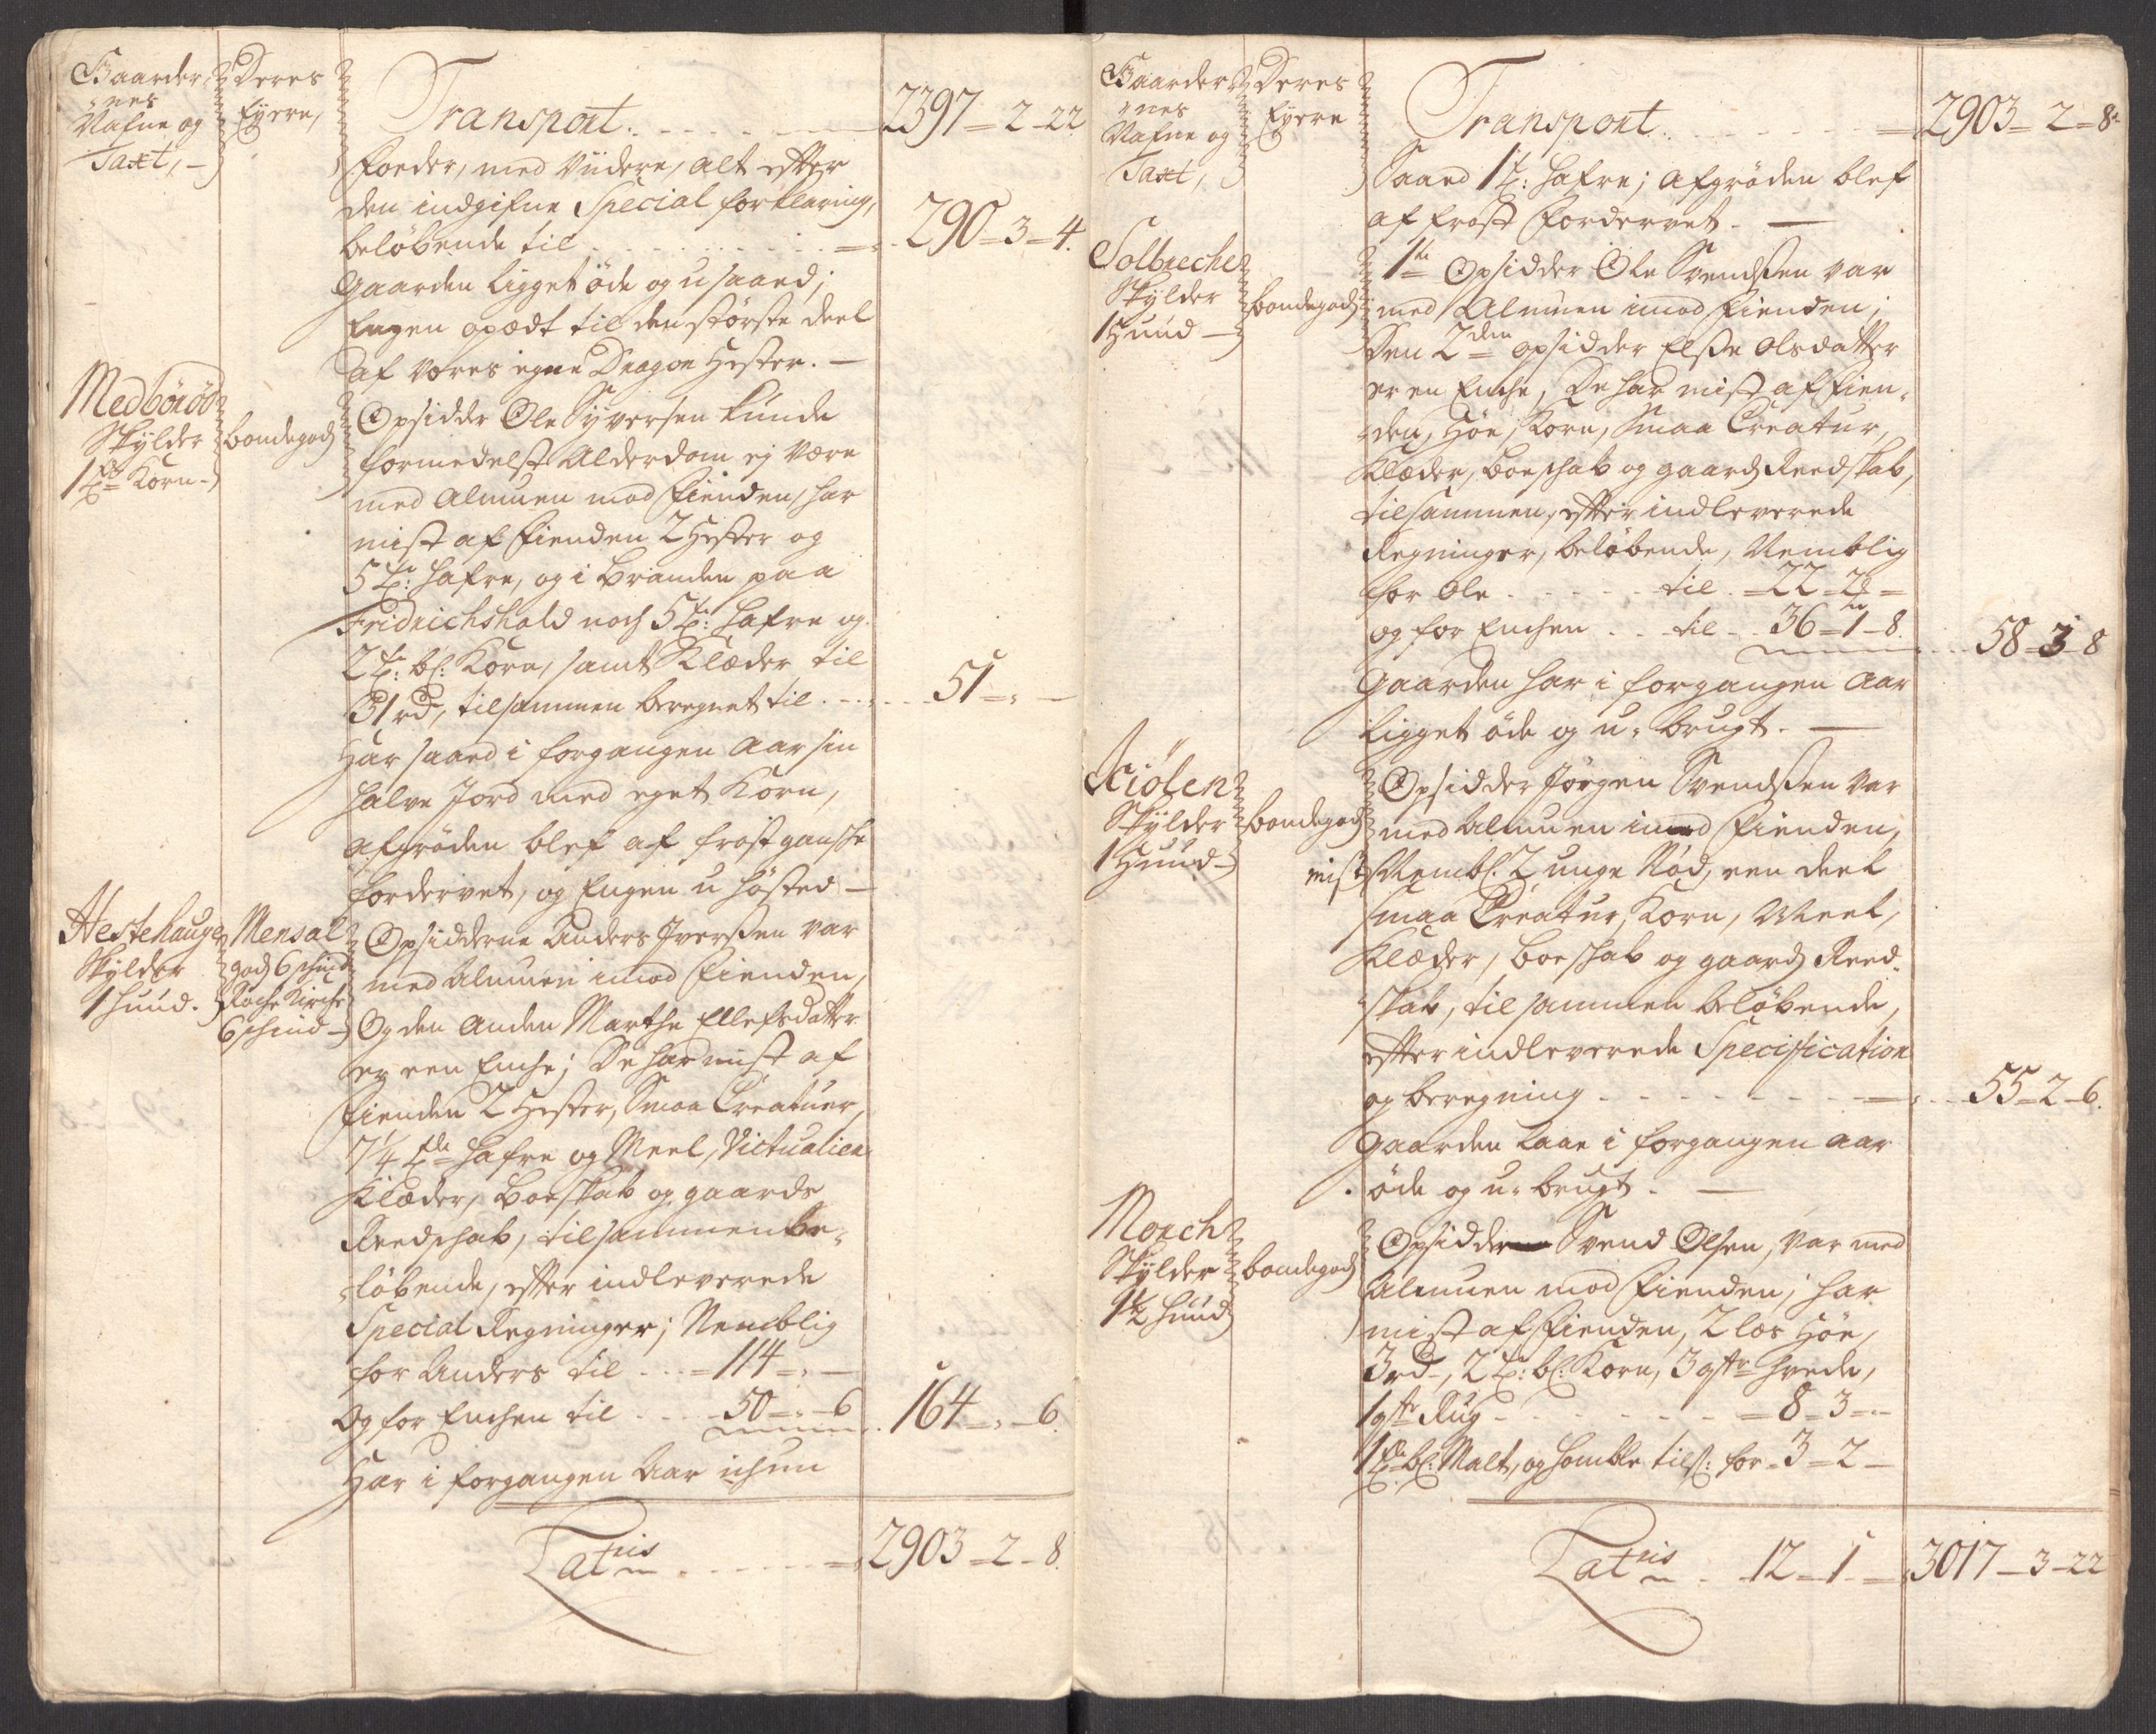 Gaarder-
nes
Nafne og
Taxt,
Deres
Eyere,
Transport. 2397 = 2 - 22
foeder, med Viidere, alt efter
den indgifne Special forklaring,
beløbende til 290 = 3 = 4.
Gaarden ligget öde og usaaed;
Engen opædt til den störste deel
af vores egne Dragon Hester. —
Medböröd
Skylder
1 t Korn
bondegods
Opsidder Ole Syversen kunde
formedelst Alderdom ej være
med Almuen mod Fienden, har
mist af Fienden 2 Hester og
5 t: Hafre, og i branden paa
Fridrichshald noch 5 t: Hafre og
2 t: bl: Korn, samt Klæder til
31 rd, tilsammen beregnet til 51
Har saaed i forgangen Aar sin
halve Jord med eget Korn,
afgröden blef af frost gansche
fordervet, og Engen u höstet —
Hestehauge
Skylder
1 huud.
Mensal
gods 6 schind
Rache Kirche
6 schind
Opsidderne Anders Iversen var
med Almuen imod Fienden,
Og den Anden Marthe Ellefsdatter
er een Enche; De har mist af
Fienden 2 Hester, Smaa Creatuer,
7 1/4 tde Hafre og Meel, Victualier
Klæder, Boeskab og gaards
Reedschab, tilsammen be-
löbende, efter indleverede
Special Regninger; Nemblig
for Anders til 114
Og for Enchen til 50 - 6 164 - 6.
Har i forgangen Aar ichun
Latris 2903 - 2 - 8.
Gaarder-
nes
Nafne og
Taxt,
Deres
Eyere
Transport 2903 - 2 - 8
Saaed 1 t: Hafre; Afgröden blef
af frost fordervet. —
Solbreche
Skylder
1 Huud
bondegods
1te Opsidder Ole Svendsen var
med Almuen imod Fienden;
Den 2den opsidder Elsse Olsdatter
er en Enche, De har mist af Fien-
den, Höe, Korn, Smaa Creatur,
Klæder, boeschab og gaards Reedskab,
tilsammen, efter indleverede
Regninger, beløbende, Nemblig
for Ole til 22 - 2
og for Enchen til 36 - 1 - 8. 58 - 3 - 8
Gaarden har i forgangen Aar
ligget öde og u-brugt. —
Kiölen
Skylder
1 Huud
bondegods
Opsidder Jörgen Svendsen var
med Almuen imod Fienden,
mist Nembl. 2 unge Nöd, een deel
smaa Creatur, Korn, Meel,
Klæder, boeschab og gaards Reed-
skab, tilsammen beløbende,
efter indleverede Specification
og beregning 55 - 2 - 6.
Gaarden laae i forgangen Aar
öde og u-brugt. —
Morch
Skylder
1 1/2 huud
bondegods
Opsidder Svend Olsen, var med
Almuen mod Fienden, har
mist af Fienden, 2 læs Höe,
3 rd, 2 t: bl: Korn, 3 qtr Hvede,
1 qtr Rug 8 - 3
1 t bl: Malt, og Homble tils: for 3 - 2
Latris 12 - 1 3017 - 3 - 22